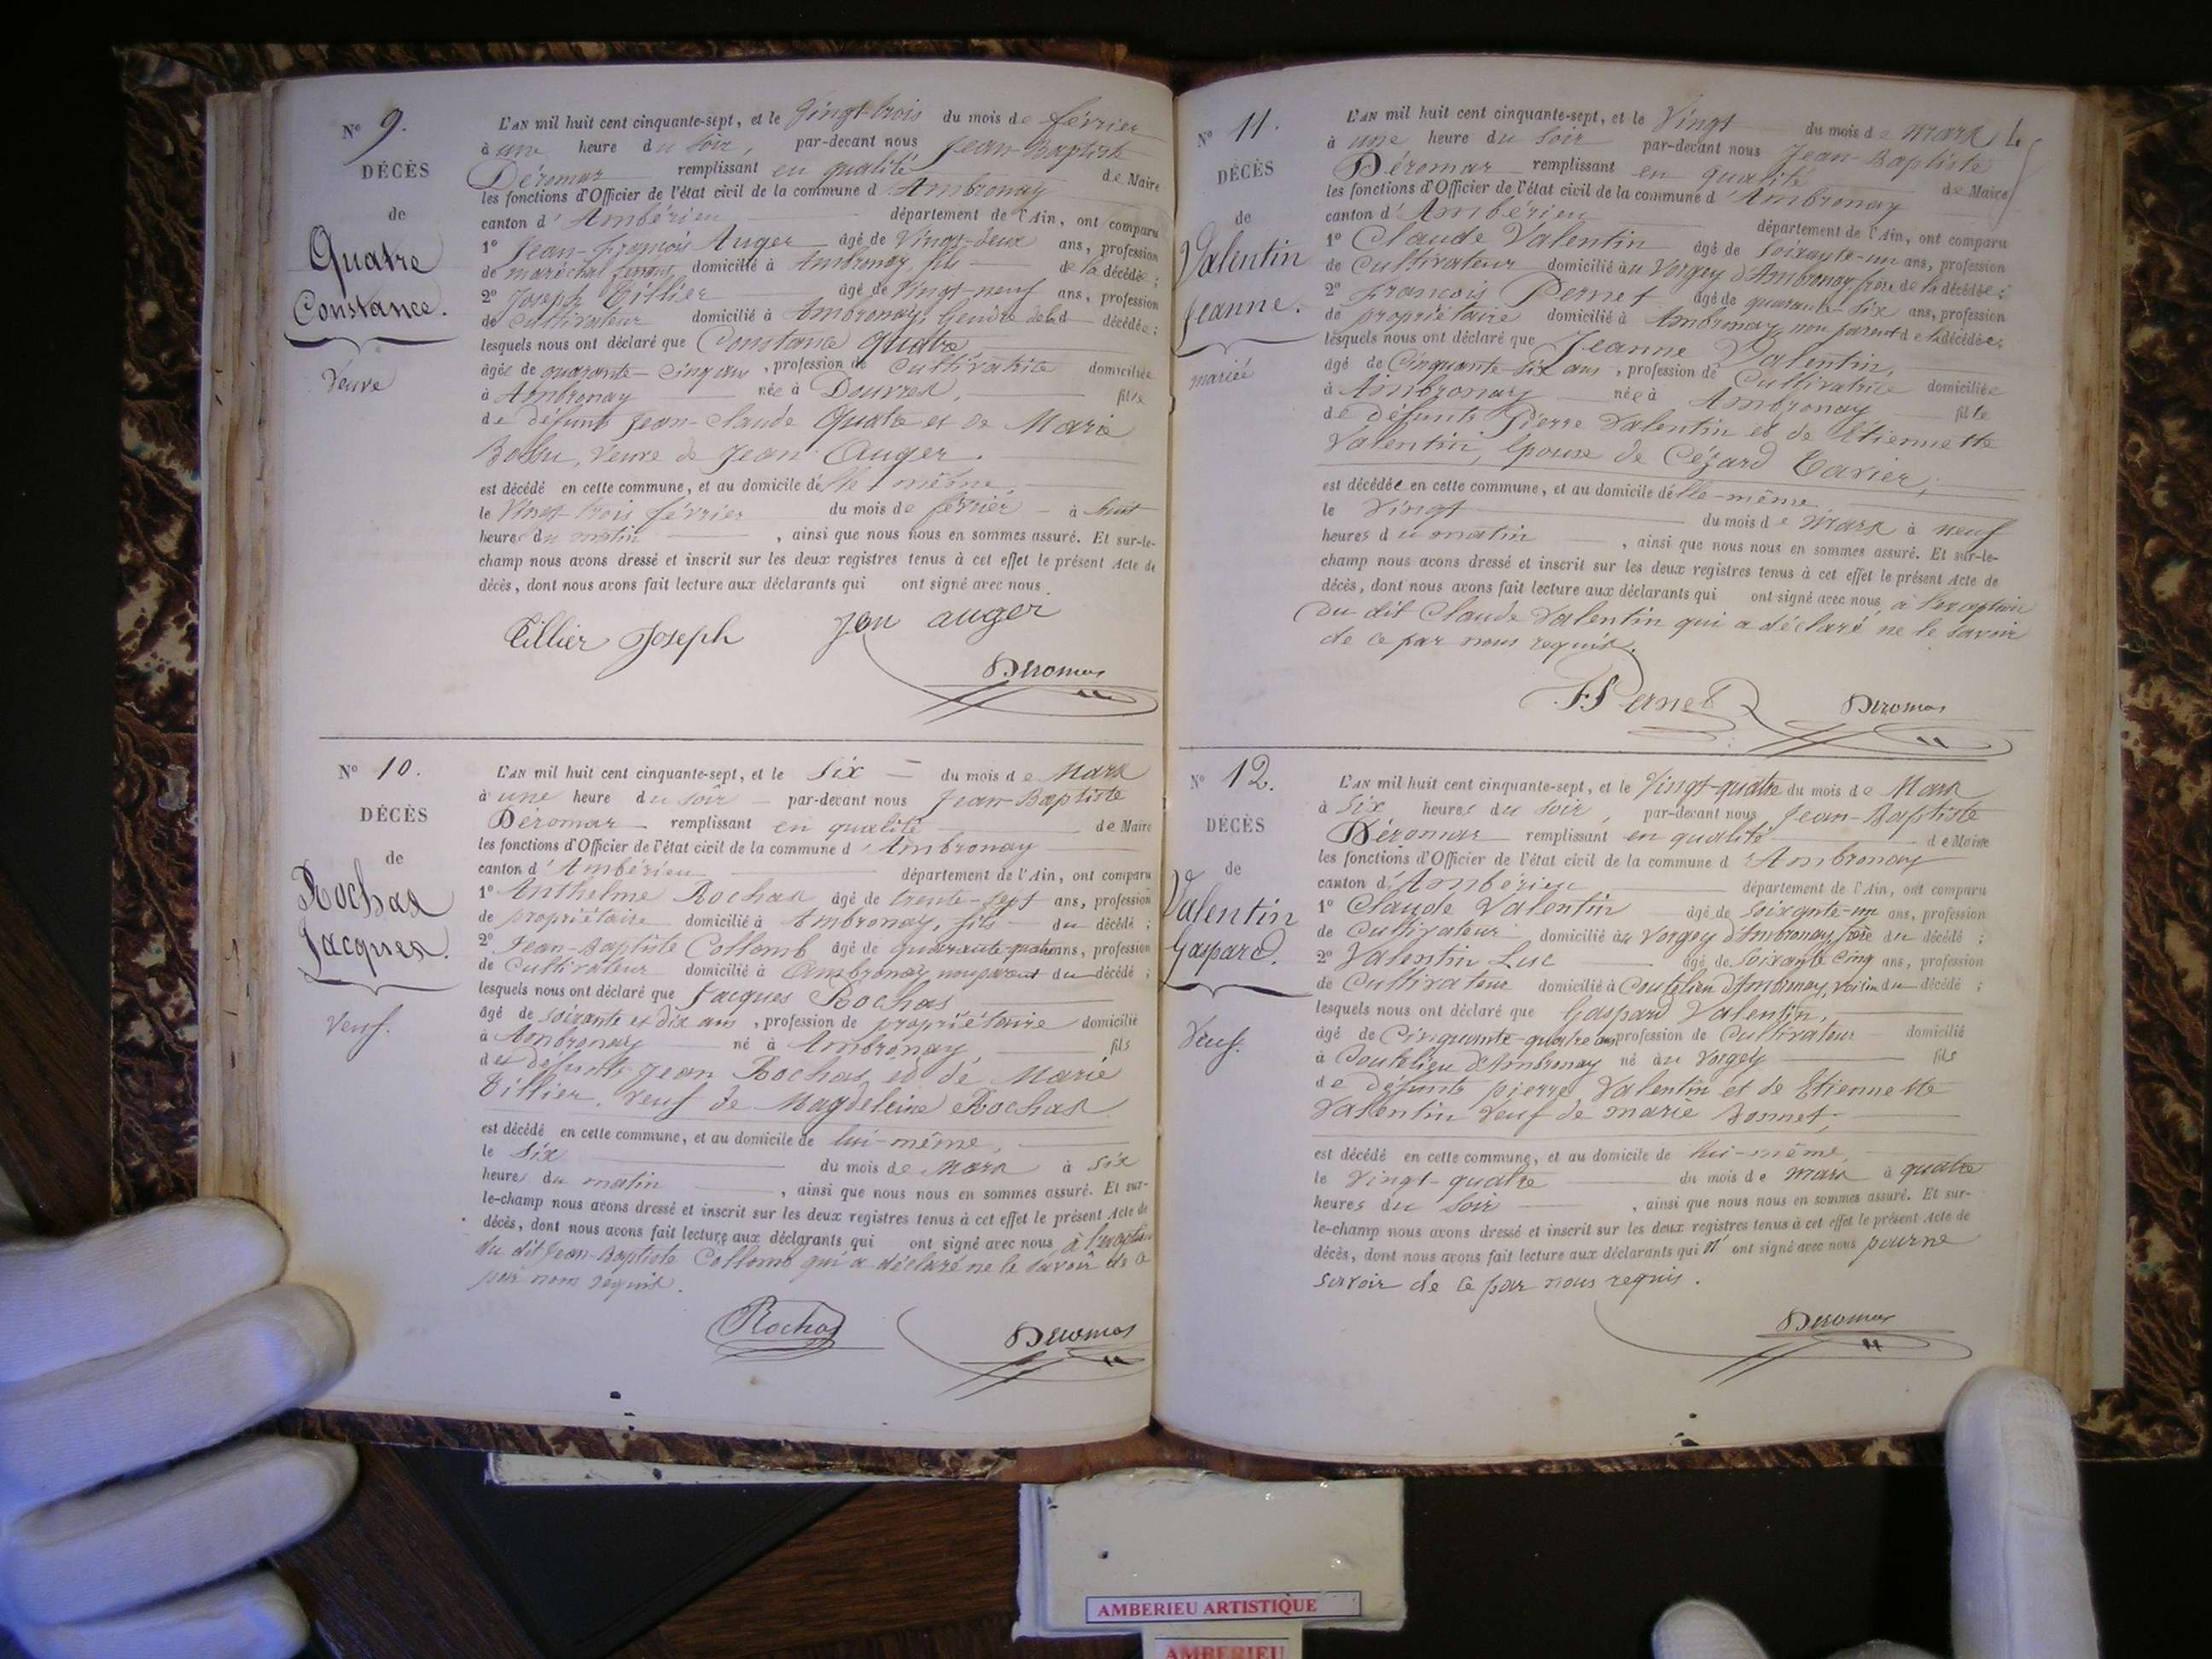 N° 9.
DÉCÈS
de
Quatre
Constance.
Veuve
L'AN mil huit cent cinquante-sept, et le Vingt trois du mois de février
à une heure du soir, par-devant nous Jean-Baptiste
Déromas remplissant en qualité de Maire
les fonctions d'Officier de l'état civil de la commune d'Ambronay
canton d'Ambérieu département de l'Ain, ont comparu
1° Jean-François Auger âgé de Vingt-deux ans, profession
de maréchal ferrant domicilié à Ambronay, fils de la décédée ;
2° Joseph Tillier âgé de Vingt-neuf ans, profession
de Cultivateur domicilié à Ambronay, Gendre de la d décédée ;
lesquels nous ont déclaré que Constance Quatre
âgée de quarante-cinq ans, profession de Cultivatrice domiciliée
à Ambronay née à Douvres, fille
de défunts Jean-Claude Quatre et de Marie
Bossu, Veuve de Jean Auger.
est décédé en cette commune, et au domicile d'elle même,
le Vingt trois février du mois de février à huit
heures du matin, ainsi que nous nous en sommes assuré. Et sur-le-
champ nous avons dressé et inscrit sur les deux registres tenus à cet effet le présent Acte de
décès, dont nous avons fait lecture aux déclarants qui ont signé avec nous.
Tillier Joseph Jen auger
Deromas
N° 10.
DÉCÈS
de
Rochas
Jacques.
Veuf.
L'AN mil huit cent cinquante-sept, et le Six du mois de Mars
à une heure du soir par-devant nous Jean-Baptiste
Déromas remplissant en qualité de Maire
les fonctions d'Officier de l'état civil de la commune d'Ambronay
canton d'Ambérieu département de l'Ain, ont comparu
1° Anthelme Rochas âgé de trente-sept ans, profession
de propriétaire domicilié à Ambronay, fils du décédé ;
2° Jean-Baptiste Collomb âgé de quarante-quatre ans, profession
de Cultivateur domicilié à Ambronay, non parent du décédé ;
lesquels nous ont déclaré que Jacques Rochas
âgé de soixante et dix ans, profession de propriétaire domicilié
à Ambronay né à Ambronay, fils
des défunts Jean Rochas et de Marie
Tillier, Veuf de Magdeleine Rochas
est décédé en cette commune, et au domicile de lui-même,
le Six du mois de Mars à six
heures du matin, ainsi que nous nous en sommes assuré. Et sur-
le-champ nous avons dressé et inscrit sur les deux registres tenus à cet effet le présent Acte de
décès, dont nous avons fait lecture aux déclarants qui ont signé avec nous à l'exception
du dit Jean-Baptiste Collomb qui a déclaré ne le savoir de ce
par nous requis.
Rochas Deromas
N° 11.
DÉCÈS
de
Valentin
Jeanne.
mariée
L'AN mil huit cent cinquante-sept, et le Vingt du mois de mars
à une heure du soir par-devant nous Jean-Baptiste
Déromas remplissant en qualité de Maire
les fonctions d'Officier de l'état civil de la commune d'Ambronay
canton d'Ambérieu département de l'Ain, ont comparu
1° Claude Valentin âgé de soixante-un ans, profession
de Cultivateur domicilié au Vorgey d'Ambronay, frère de la décédée ;
2° François Pernet âgé de quarante-six ans, profession
de propriétaire domicilié à Ambronay, non parent de la décédée ;
lesquels nous ont déclaré que Jeanne Valentin,
âgé de Cinquante-six ans, profession de Cultivatrice domiciliée
à Ambronay née à Ambronay fille
de défunts Pierre Valentin et de Etiennette
Valentin, épouse de Cézard Tavier,
est décédée en cette commune, et au domicile d'elle-même
le Vingt du mois de mars à neuf
heures du matin, ainsi que nous nous en sommes assuré. Et sur-le-
champ nous avons dressé et inscrit sur les deux registres tenus à cet effet le présent Acte de
décès, dont nous avons fait lecture aux déclarants qui ont signé avec nous, à l'exception
du dit Claude Valentin qui a déclaré ne le savoir
de ce par nous requis.
F. Pernet Deromas
N° 12.
DÉCÈS
de
Valentin
Gaspard.
Veuf.
L'AN mil huit cent cinquante-sept, et le Vingt-quatre du mois de Mars
à six heures du soir, par-devant nous Jean-Baptiste
Déromas remplissant en qualité de Maire
les fonctions d'Officier de l'état civil de la commune d'Ambronay
canton d'Ambérieu département de l'Ain, ont comparu
1° Claude Valentin âgé de soixante-un ans, profession
de Cultivateur domicilié au Vorgey d'Ambronay, frère du décédé ;
2° Valentin Luc âgé de soixante cinq ans, profession
de Cultivateur domicilié à Coutelieu d'Ambronay, voisin du décédé ;
lesquels nous ont déclaré que Gaspard Valentin,
âgé de Cinquante-quatre ans profession de Cultivateur domicilié
à Coutelieu d'Ambronay né au Vorgey fils
de défunts pierre Valentin et de Etiennette
Valentin Veuf de marie Bonnet,
est décédé en cette commune, et au domicile de lui-même,
le Vingt-quatre du mois de mars à quatre
heures du soir, ainsi que nous nous en sommes assuré. Et sur-
le-champ nous avons dressé et inscrit sur les deux registres tenus à cet effet le présent Acte de
décès, dont nous avons fait lecture aux déclarants qui n'ont signé avec nous pour ne
savoir de ce par nous requis.
Deromas
AMBERIEU ARTISTIQUE
AMBERIEU